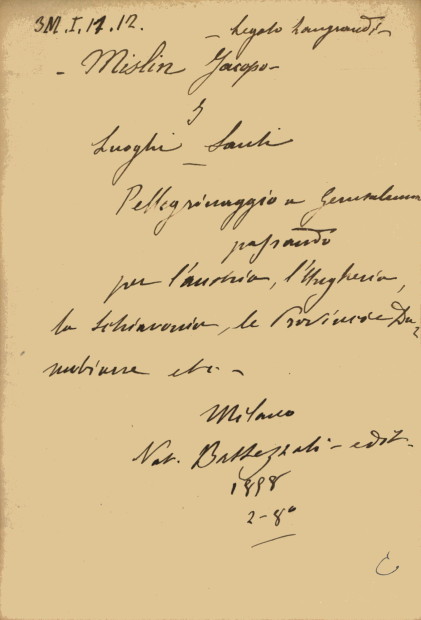 3M.I.17.12.
- Legato Langrandi -
- Mislin Jacopo -
I
Luoghi Santi
Pellegrinaggio a Gerusalemme
passando
per l'Austria, l'Ungheria,
la Schiavonia, le Provincie Da=
nubiane etc. -
Milano
Nat. Battezzati - edit.
1858
2 - 8°